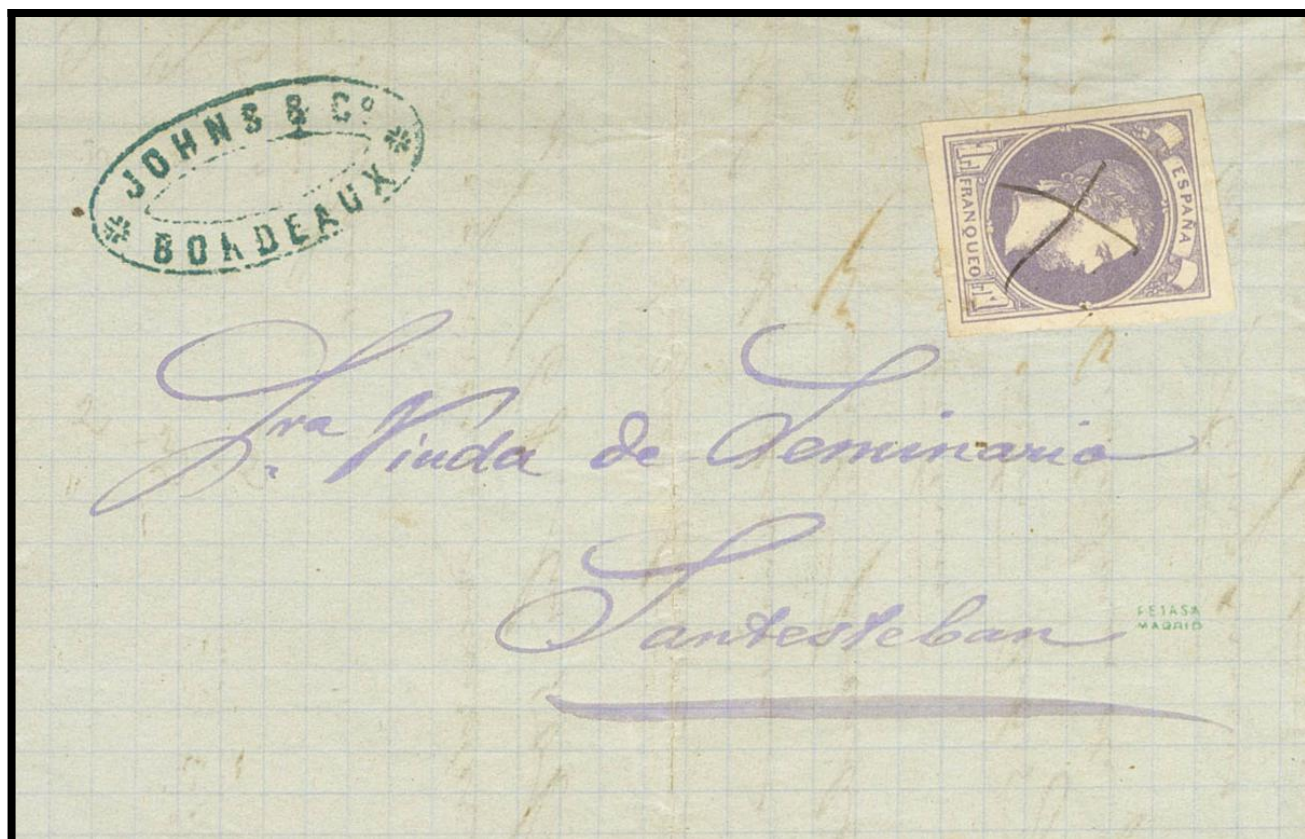 JOHNS & Cº
BORDEAUX
ESPAÑA
1 FRANQUEO 1
Sra. Viuda de Seminario
Santesteban
PETASA
MADRID